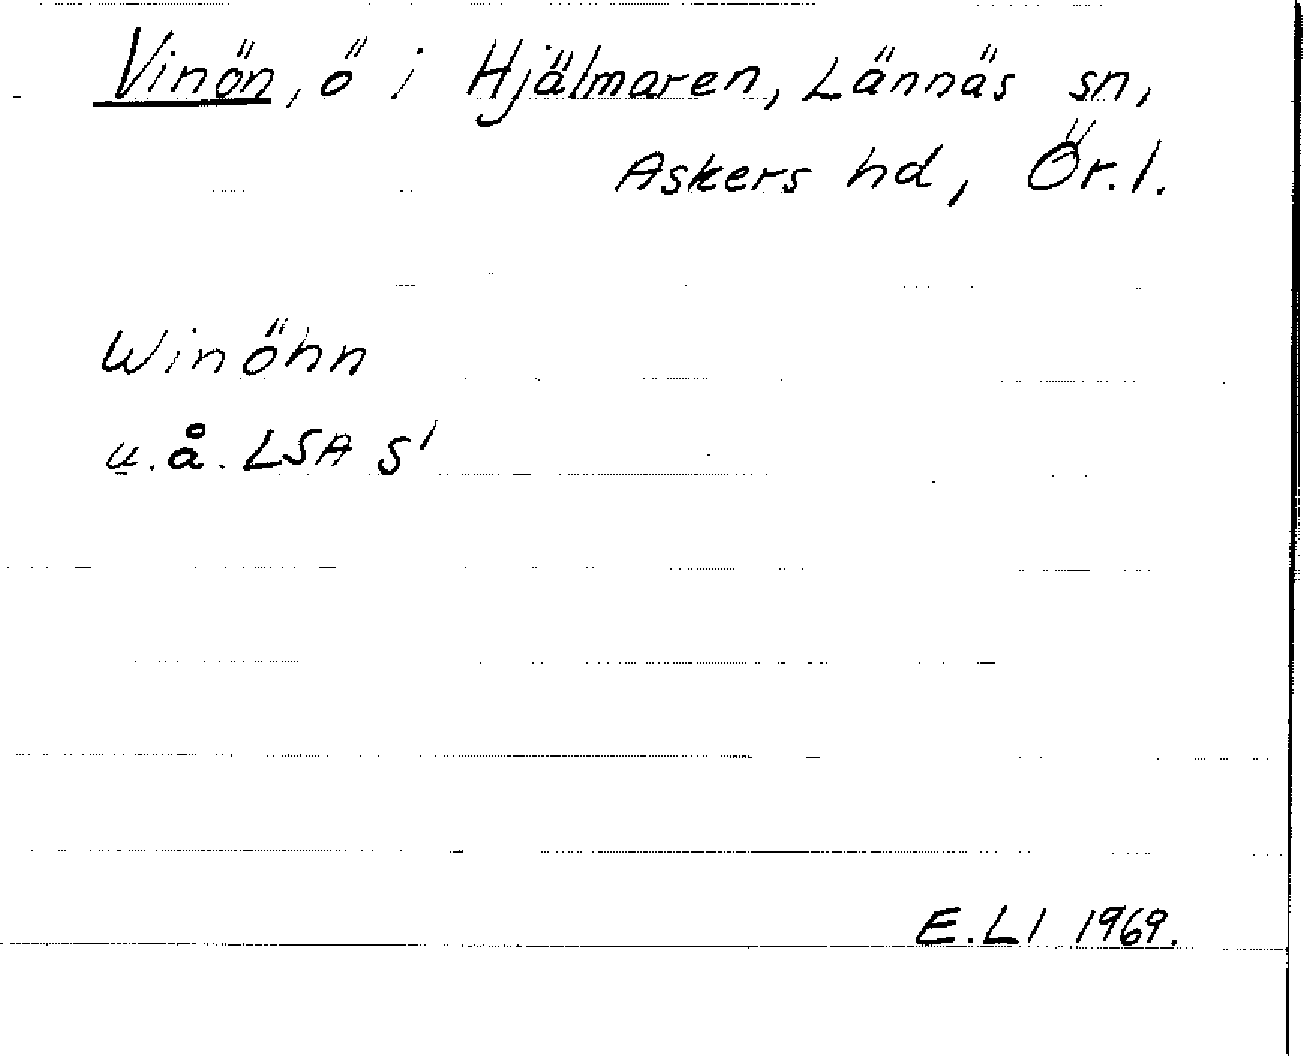 Vinön, ö i Hjälmaren, Lännäs sn,
Askers hd, Ör.l.
Winöhn
u.å. LSA S¹
E.Ll 1969.